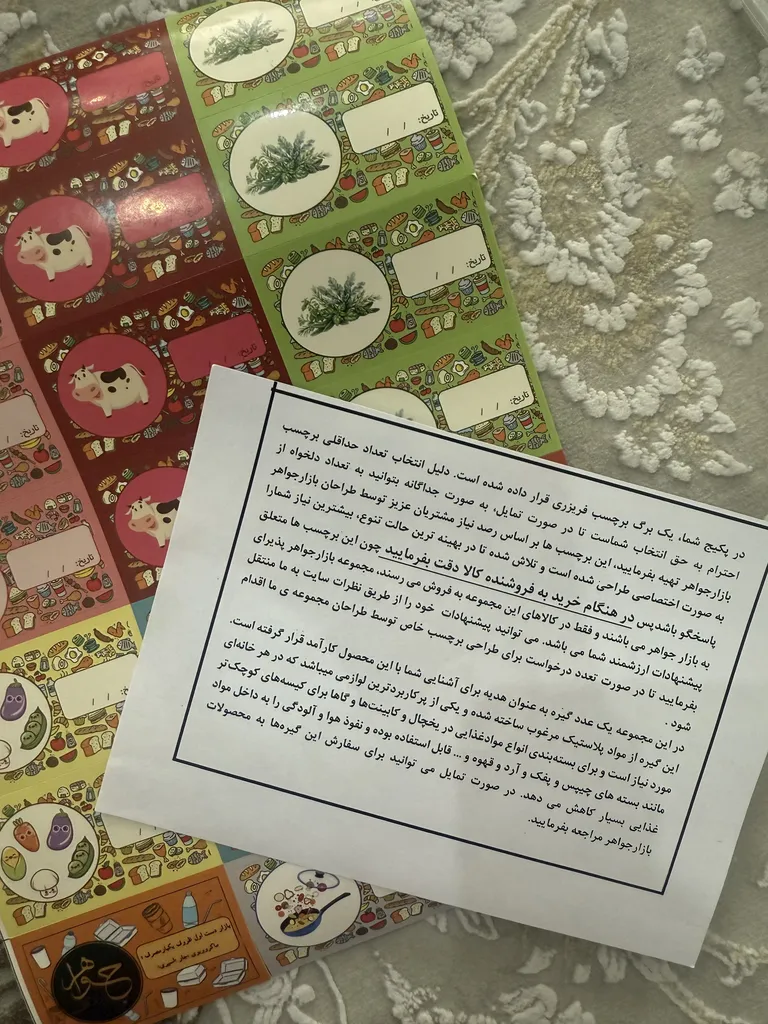 تاریخ: / /
تاریخ: / /
تاریخ: / /
تاریخ: / /
تاریخ:
تاریخ:
در پکیج شما، یک برگ برچسب فریزری قرار داده شده است. دلیل انتخاب تعداد حداقلی برچسب
احترام به حق انتخاب شماست تا در صورت تمایل، به صورت جداگانه بتوانید به تعداد دلخواه از
بازارجواهر تهیه بفرمایید، این برچسب ها بر اساس رصد نیاز مشتریان عزیز توسط طراحان بازارجواهر
به صورت اختصاصی طراحی شده است و تلاش شده تا در بهینه ترین حالت تنوع، بیشترین نیاز شمارا
پاسخگو باشدپس در هنگام خرید به فروشنده کالا دقت بفرمایید چون این برچسب ها متعلق
به بازار جواهر می باشند و فقط در کالاهای این مجموعه به فروش می رسند، مجموعه بازارجواهر پذیرای
پیشنهادات ارزشمند شما می باشد. می توانید پیشنهادات خود را از طریق نظرات سایت به ما منتقل
بفرمایید تا در صورت تعدد درخواست برای طراحی برچسب خاص توسط طراحان مجموعه ی ما اقدام
شود .
در این مجموعه یک عدد گیره به عنوان هدیه برای آشنایی شما با این محصول کارآمد قرار گرفته است.
این گیره از مواد پلاستیک مرغوب ساخته شده و یکی از پرکاربردترین لوازمی میباشد که در هر خانه‌ای
مورد نیاز است و برای بسته‌بندی انواع موادغذایی در یخچال و کابینت‌ها و گاها برای کیسه‌های کوچک‌تر
مانند بسته های چیپس و پفک و آرد و قهوه و ... قابل استفاده بوده و نفوذ هوا و آلودگی را به داخل مواد
غذایی بسیار کاهش می دهد. در صورت تمایل می توانید برای سفارش این گیره‌ها به محصولات
بازارجواهر مراجعه بفرمایید.
بازار دست اول ظروف یکبارمصرف ،
جواهر